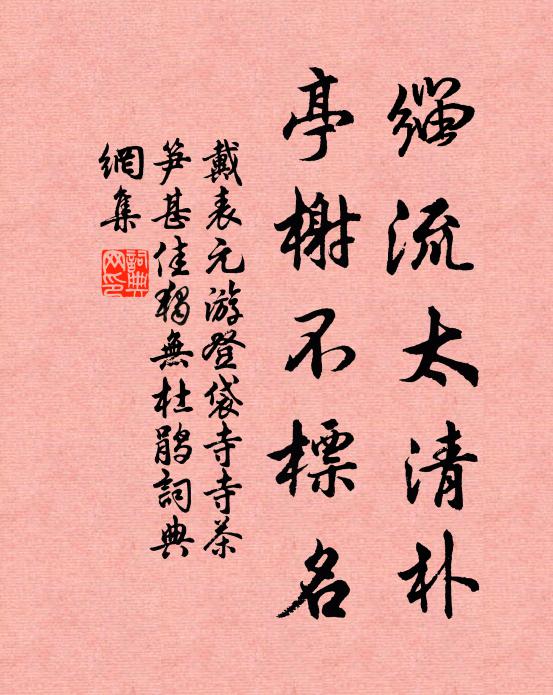 緇流太清朴
亭榭不標名
戴表元游登袋寺寺茶
笋甚佳獨無杜鵑詞典
網集
詞典網印